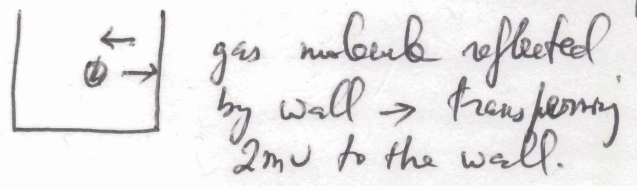 gas molecule reflected
by wall → transferring
2mv to the wall.